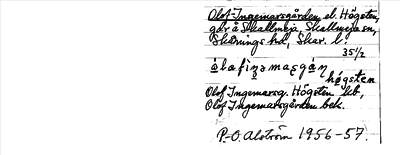 Olof-Ingemarsgården, el. Högsten,
går å Skallmeja, Skallmeja sn,
Skånings hd, Skar. l.
35 1/2
högsten
Olof Ingemarsg. Högsten kb,
Olof Ingemarsgården bek.
P.-O. Alström 1956-57.